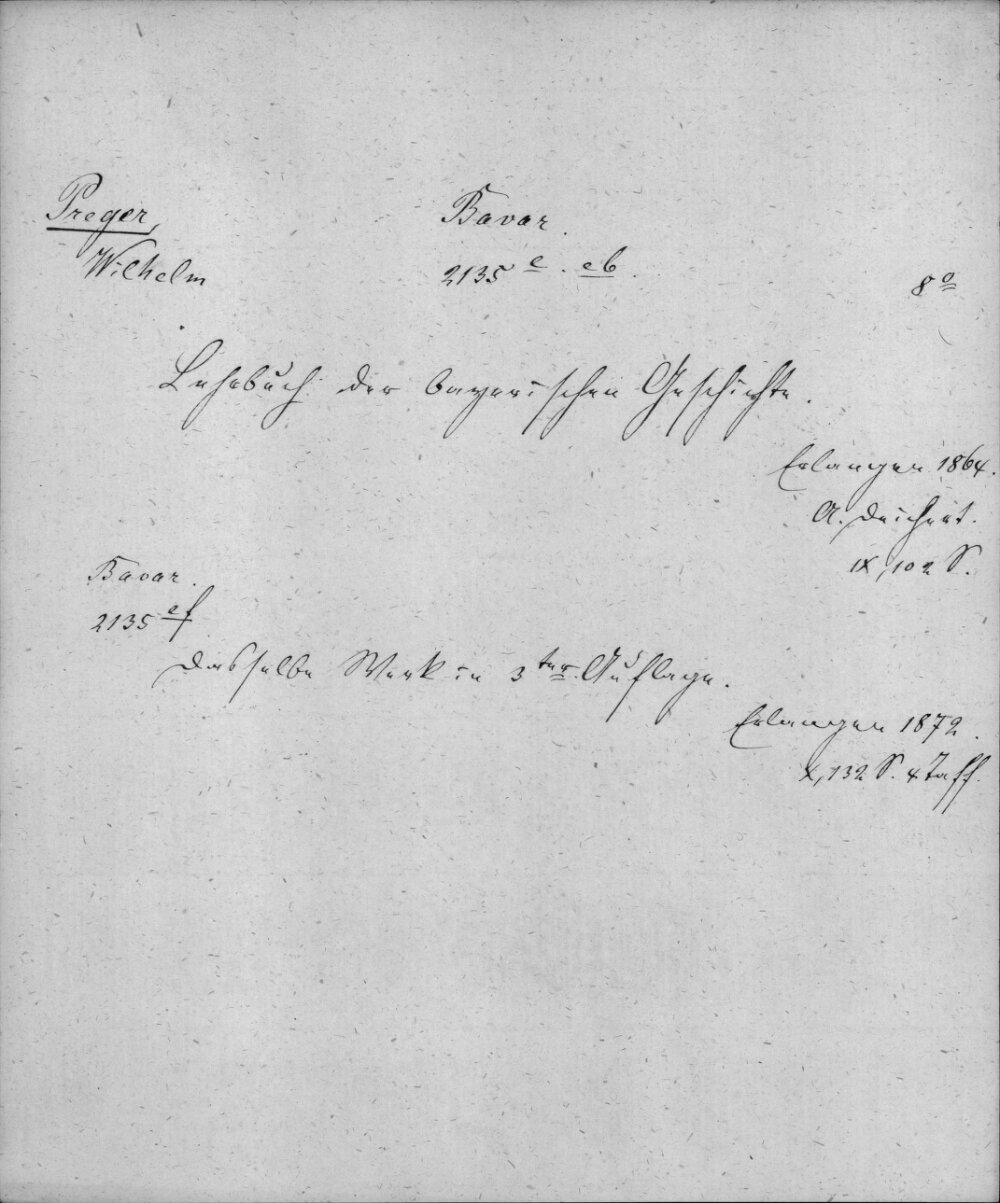 Preger,
Wilhelm
Bavar.
2135 e. eb.
8o
Lehrbuch der bayerischen Geschichte.
Erlangen 1864.
A. Deichert.
IX, 102 S.
Bavar.
2135 ef
Dasselbe Werk in 3ter Auflage.
Erlangen 1872.
X, 132 S. 4 Taff.